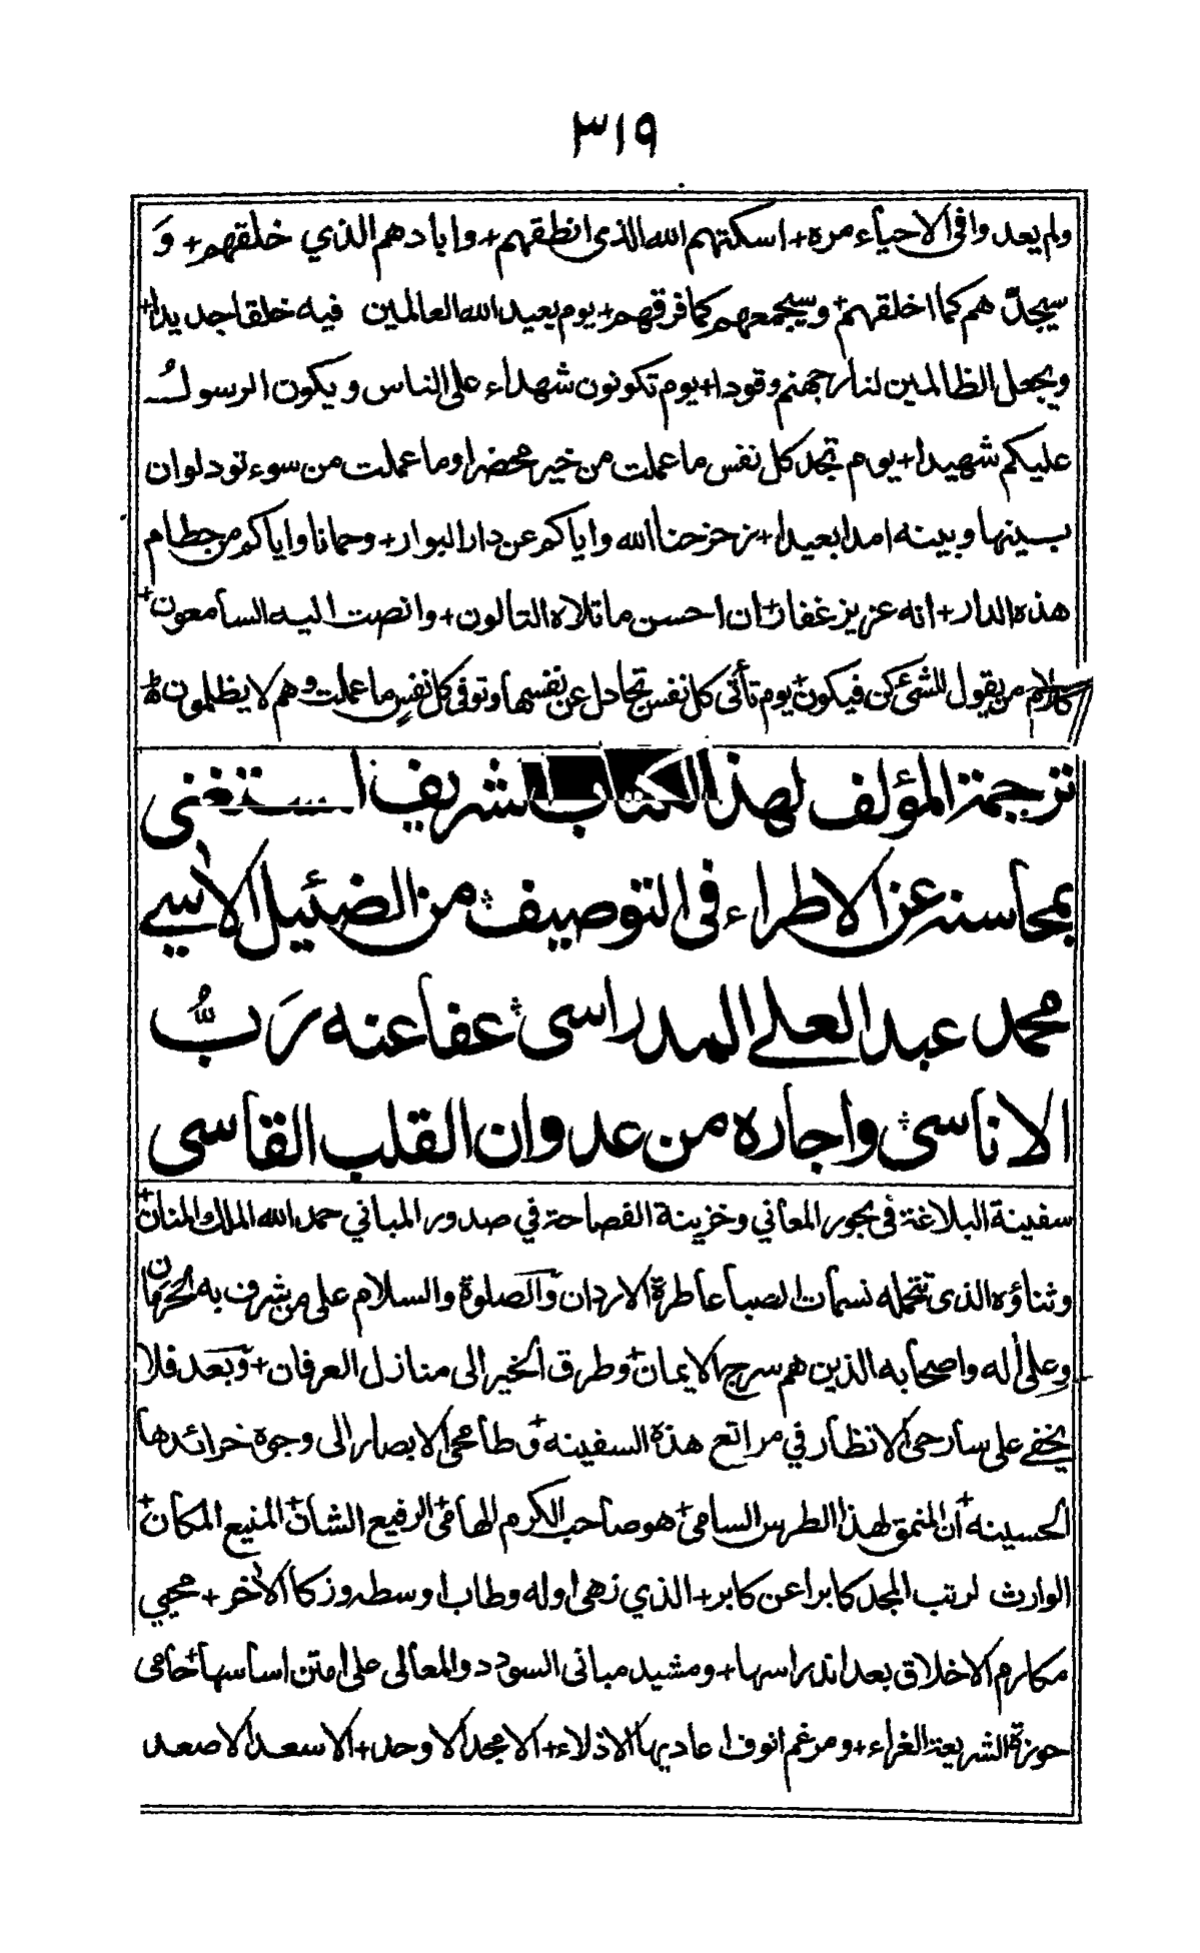 ٣١٩
ولم يعدوا في الاحياء مرة + اسكتهم الله الذي انطقهم + وابادهم الذي خلقهم + وَ
سيجدّ هم كما اخلقهم + وسيجمعهم كما فرقهم + يوم يعيد الله العالمين فيه خلقا جديدا +
ويجعل الظالمين لنار جهنم وقودا + يوم تكونون شهداء على الناس ويكون الرسولُ
عليكم شهيدا + يوم تجد كل نفس ما عملت من خير محضرا وما عملت من سوء تود لو ان
بينها وبينه امدا بعيدا + زحزحنا الله واياكم عن دار البوار + وحمانا واياكم من حطام
هذه الدار + انه عزيز غفار + ان احسن ما تلاه التالون + وانصت اليه السامعون +
كلام من يقول للشئ كن فيكون + يوم تأتى كل نفس تجادل عن نفسها وتوفى كل نفسٍ ما عملت وهم لا يظلمون
ترجمة المؤلف لهذا الكتاب الشريف استغنى
بمحاسنه عن الاطراء فى التوصيف من الضئيل الاسي
محمد عبد العلي المدراسى عفا عنه رَبُّ
الاناسى واجاره من عدوان القلب القاسى
سفينة البلاغة في بحور المعاني وخزينة الفصاحة في صدور المباني حمد الله الملك المنان +
وثناؤه الذى تتحمله نسمات الصبا عاطرة الاردان والصلوة والسلام على من شرف به الحرمان
وعلى أله واصحابه الذين هم سرج الايمان + وطرق الخير الى منازل العرفان + وبعد فلا
يخفى على سارحى الانظار في مراتع هذه السفينه + وطامحى الابصار الى وجوه خرائدها
الحسينه + أن المنمق لهذا الطرس السامى + هو صاحب الكرم الهامى + الرفيع الشان + المنيع المكان +
الوارث لرتب المجد كابرا عن كابر + الذي زهى اوله وطاب اوسطه وزكا الأخر + محيي
مكارم الاخلاق بعد اندراسها + ومشيد مبانى السودد والمعالى على امتن اساسها + حامى
حوزة الشريعة الغراء + ومرغم انوف اعاديها الاذلاء + الامجد الاوحد + الاسعد الاصعد